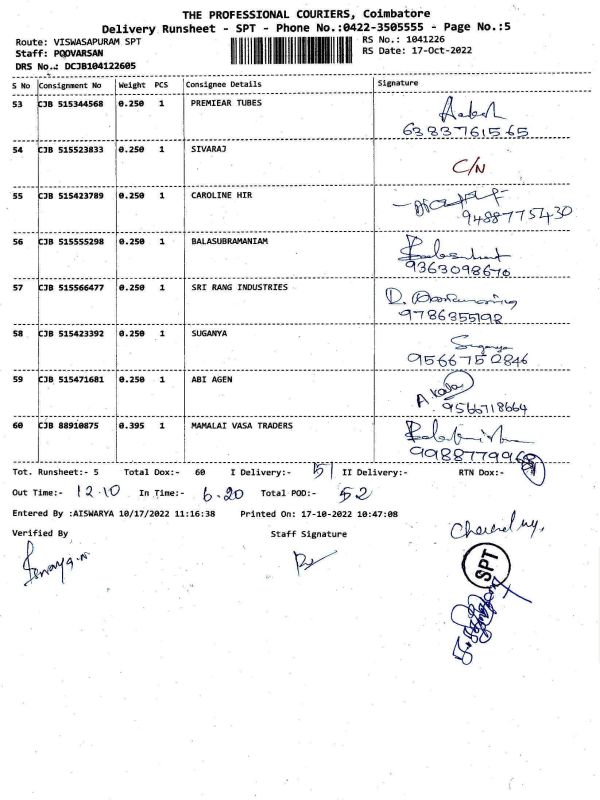 THE PROFESSIONAL COURIERS, Coimbatore
Delivery Runsheet - SPT - Phone No.:0422-3505555 - Page No.:5
Route: VISWASAPURAM SPT RS No.: 1041226
Staff: POOVARSAN RS Date: 17-Oct-2022
DRS No.: DCJB104122605
S No Consignment No Weight PCS Consignee Details Signature
53 CJB 515344568 0.250 1 PREMIEAR TUBES
6383761565
54 CJB 515523833 0.250 1 SIVARAJ C/N
55 CJB 515423789 0.250 1 CAROLINE HIR
9488775430
56 CJB 515555298 0.250 1 BALASUBRAMANIAM
9363098670
57 CJB 515566477 0.250 1 SRI RANG INDUSTRIES
9786355198
58 CJB 515423392 0.250 1 SUGANYA Suganya
9566750846
59 CJB 515471681 0.250 1 ABI AGEN A kala
9566718664
60 CJB 88910875 0.395 1 MAMALAI VASA TRADERS
Tot. Runsheet:- 5 Total Dox:- 60 I Delivery:- 51 II Delivery:- RTN Dox:-
Out Time:- 12.10 In Time:- 6.20 Total POD:- 52
Entered By :AISWARYA 10/17/2022 11:16:38 Printed On: 17-10-2022 10:47:08
Verified By Staff Signature
SPT